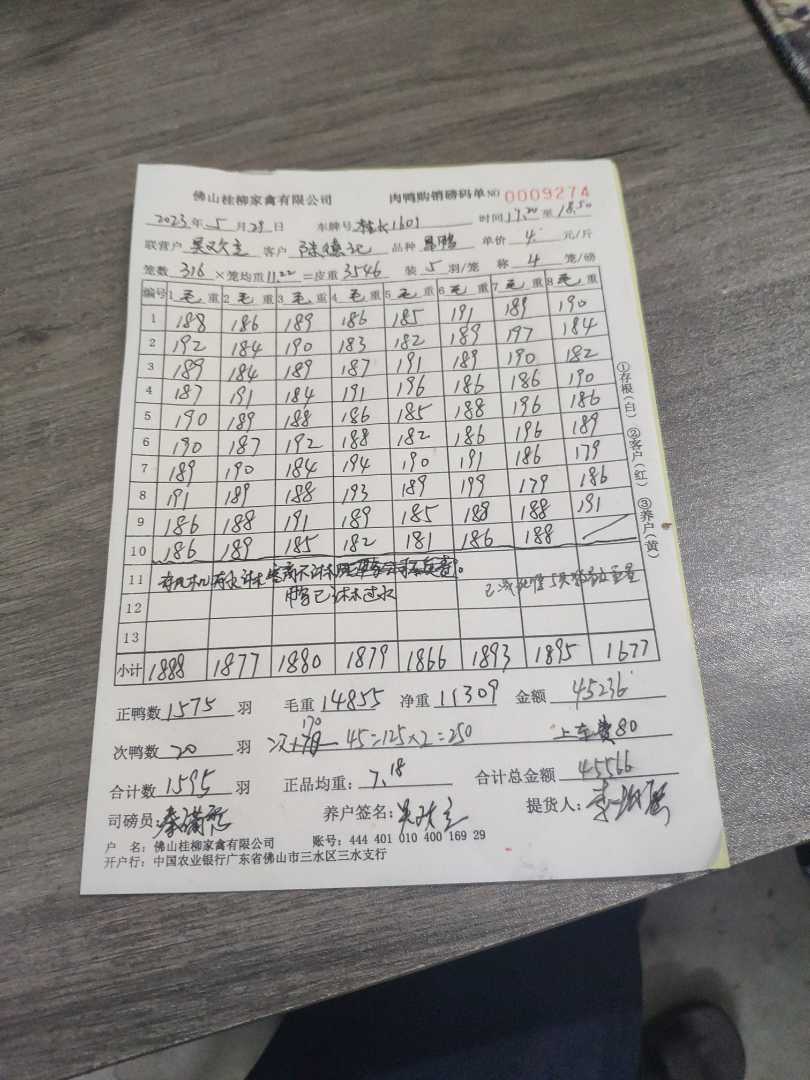 佛山桂柳家禽有限公司 肉鸭购销磅码单 NO 0009274
2023年5月29日 车牌号 桂k1601 时间 17.20至18.50
联营户 客户 品种 单价 4. 元/斤
笼数 316 ×笼均重 11.22 =皮重 3546 装 5 羽/笼 称 4 笼/磅
编号 1 毛 重 2 毛 重 3 毛 重 4 毛 重 5 毛 重 6 毛 重 7 毛 重 8 毛 重
1 188 186 189 186 185 191 189 190
2 192 184 190 183 182 189 197 184
3 189 184 189 187 191 189 190 182
4 187 191 184 191 196 186 186 190
5 190 189 188 186 185 188 196 186
6 190 187 192 188 182 186 196 189
7 189 190 184 194 190 191 186 179
8 191 189 188 193 189 199 179 186
9 186 188 191 189 185 188 188 191
10 186 189 185 182 181 186 188
11
12
13
小计 1888 1877 1880 1879 1866 1893 1895 1677
正鸭数 1575 羽 毛重 14855 净重 11309 金额 45236
次鸭数 20 羽 170 45=125×2=250 上车费80
合计数 1595 羽 正品均重: 7.18 合计总金额 45566
司磅员: 养户签名: 提货人:
户 名: 佛山桂柳家禽有限公司 账号: 444 401 010 400 169 29
开户行: 中国农业银行广东省佛山市三水区三水支行
①存根(白) ②客户(红) ③养户(黄)